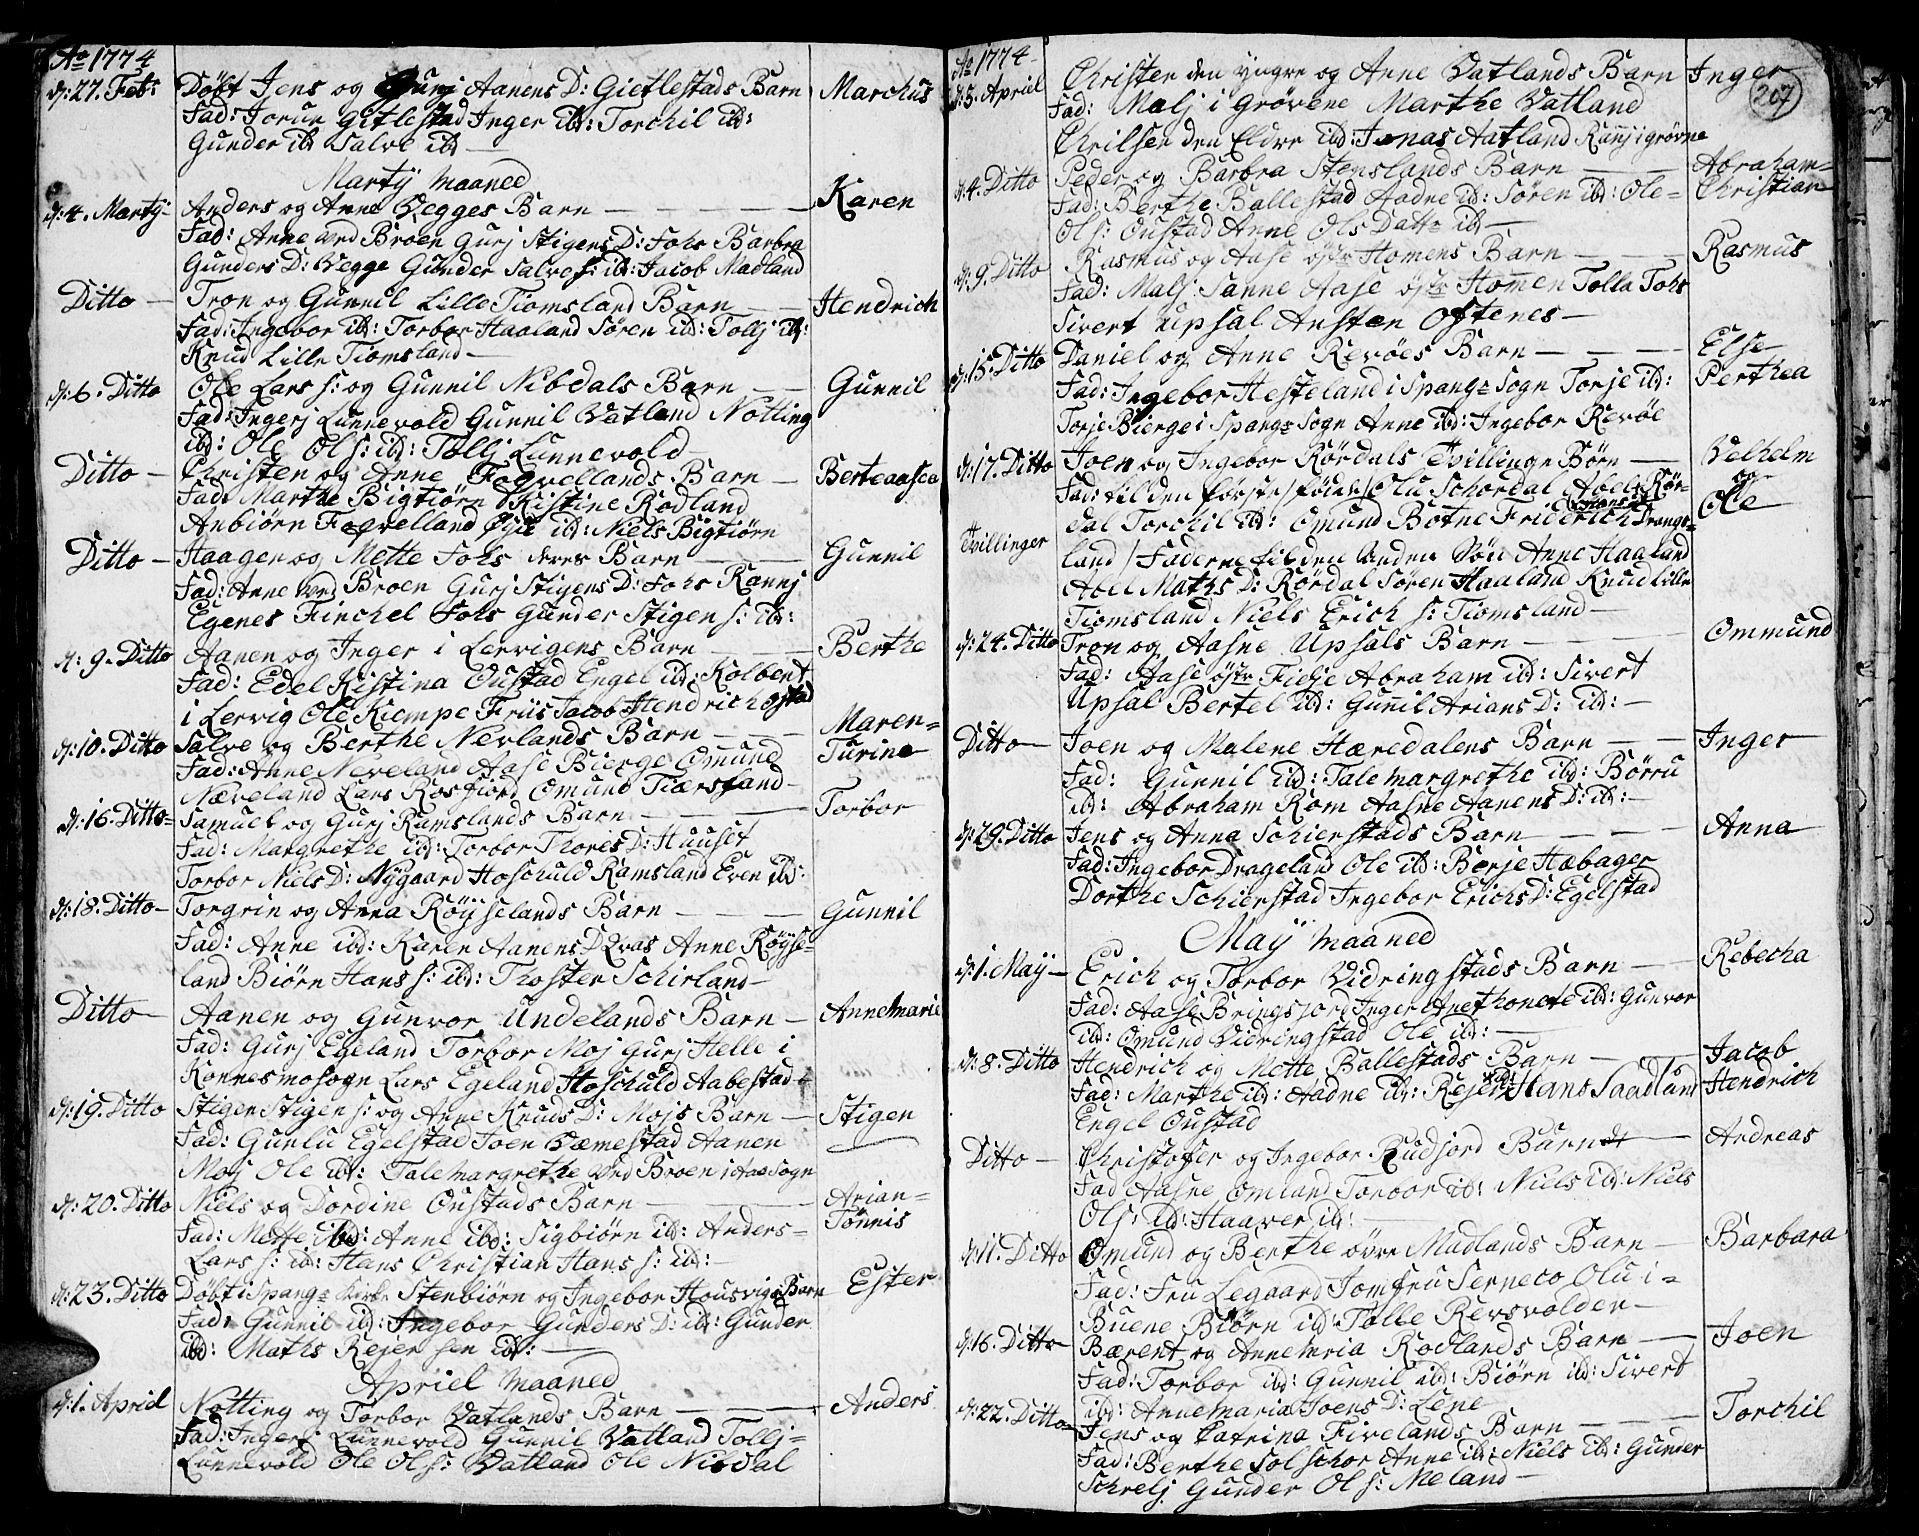 Ao 1774
d: 27. Feb: Döbt Jens og Gurj Aanens D: Gietlestads Barn Marchus
Fad: Jorun Gitlestad Inger ibd: Torchil ibd:
Gunder ibd Salve ibd —
Martÿ Maaned
d: 4. Martÿ Anders og Anne Vegges Barn — — — — Karen
Fad: Anne ved Broen Gurj Stigens D: Fohs Barbra
Gunders D: Vegge Gunder Salves: ibd: Jacob Madland
Ditto — Tron og Gunnil Lille Tiomsland Barn — — Hendrich
Fad: Ingebor ibd: Torbor Haaland Sören ibd: Tollj ibd:
Knud Lille Tiomsland —
d: 6. Ditto Ole Lars s: og Gunnil Nibdals Barn — — Gunnil
Fad: Ingerj Lunnevold Gunnil Vatland Notting
ibd: Ole Ol s: ibd: Tollj Lunnevold —
Ditto — Christen og Anne Foqvellands Barn — Berteaasea
Fad: Marthe Bigtiörn Kistine Rodland
Anbiörn Foqvelland ibd: Niels Bigtiörn
Ditto — Haagen og Mette Fohs deres Barn — — Gunnil
Fad: Anne ved Broen Gurj Stigens D: Fohs Rannj
Egenes Finchel Fohs Gunder Stigen s: ibd:
d: 9. Ditto Aanen og Inger i Lervigens Barn — — Berthe
Fad: Edel Kistina Oustad Engel ibd: Kolbent
i Lervig Ole Kiempe Friis Jacob Hendrich Ostad
d: 10. Ditto Salve og Berthe Nevlands Barn — — Maren-
Turine
Fad: Anne Neveland Aase Bierge Omund
Næveland Lars Rosfiord Omund Tiærsland
d: 16. Ditto Samuel og Gurj Ramslands Barn — — — Torbor
Fad: Margrethe ibd: Torbor Thores D: Huuset
Torbor Niels D: Nÿgaard Hoschuld Ramsland Even ibd:
d: 18. Ditto — Torgrin og Anna Röÿselands Barn — — — Gunnil
Fad: Anne ibd: Karen Aanens D Qvas Anne Röÿse-
land Biörn Hans s: ibd: Thosten Schirland —
Ditto — Aanen og Gunvor Undelands Barn — Annemarie
Fad: Gurj Egeland Torbor Moj Gurj Helle i
Konnesmosogn Lars Egeland Hoschuld Aabestad
d: 19. Ditto Stigen Stigen s: og Anne Knuds D: Mojs Barn — Stigen
Fad: Gunlu Egelstad Joen Væmestad Aanen
Moj Ole ibd: Talemargrethe ved Broen i Haa Sogn
d: 20. Ditto Niels og Dordine Oustads Barn — — — Arian-
Tönnis
Fad: Mette ibd: Anne ibd: Sigbiörn ibd: Anders-
Lars s: ibd: Hans Christian Hans s: ibd: —
d: 23. Ditto Döbt i Spangs Kirke Stenbiörn og Ingebor Housvigs Barn Ester
Fad: Gunnil ibd: Ingebor Gunders D: ibd: Gunder
ibd: Maths Rejersen ibd: —
Apriel Maaned
d: 1. Apriel Notting og Torbor Vatlands Barn — — — Anders
Fad: Ingerj Lunnevold Gunnil Vatland Tollj-
Lunnevold Ole Ols: Vatland Ole Nibdal
Ao 1774
207
d: 3. Apriel Christen den yngre og Anne Vatlands Barn Inger
Fad: Malj i Grövene Marthe Vatland
Chrilsen den Eldre ibd: Jonas Aatland Rannj i grövne
d: 4. Ditto Peder og Barbra Stenslands Barn — — Abraham-
Christian
Fad: Berthe Ballestad Aadne ibd: Sören ibd: Ole-
Ols: Oustad Anne Ols Datter ibd —
d: 9. Ditto Rasmus og Aase östr Homens Barn — — Rasmus
Fad: Malj Sanne Aase östr Homen Tolla Fohs
Sivert Upsal Austen Oftenes —
d: 15. Ditto Daniel og Anne Revöes Barn — — — Else
Perthea
Fad: Ingebor Hesteland i Spangs Sogn Torje ibd:
Torje Bierge i Spangs Sogn Anne ibd: Ingebor Revöe
d: 17. Ditto Joen og Ingebor Rördals Tvillinge Börn — Velhelm
og
Ole
Fad: til den förste föde Olu Schordal Aoel Rör-
dal Torchil ibd: Omund Botne Friderich Hans s: Drangs-
Tvillinger land / Faderne til den anden Sön Anne Haaland
Aoel Maths D: Rördal Sören Haaland Knud Lille
Tiomsland Niels Erich s: Tiomsland —
d: 24. Ditto Tron og Aasne Upsals Barn — — — — Ommund
Fad: Aase östr Fidje Abraham ibd: Sivert
Upsal Bertel ibd: Gunnil Arians D: ibd: —
Ditto — Joen og Malene Hæredalens Barn — — Inger
Fad: Gunnil ibd: Talemargrethe ibd: Börru
ibd: Abraham Rom Aasne Aanens D: ibd: —
d: 29. Ditto Jens og Anna Schierstads Barn — — — Anna
Fad: Ingebor Drageland Ole ibd: Borje Hæbager
Dorthe Schierstad Ingebor Erichs D: Egelstad
Maÿ Maaned
d: 1. Maÿ — Erich og Torbor Vidringstads Barn — Rebecha
Fad: Aase Bringsjord Inger Anethonete ibd: Gunvor
ibd: Omund Vidringstad Ole ibd: —
d: 8. Ditto Hendrich og Mette Ballestads Barn — — Jacob
Hendrich
Fad: Marthe ibd: Aadne ibd: Rejer ibd: Hans Saadland
Engel Oustad
Ditto — Christofer og Ingebor Rudjord Barn — Andreas
Fad Aasne Omland Torbor ibd: Niels ibd: Niels
Ols: ibd: Haaver ibd: —
d: 11. Ditto Omund og Berthe övre Madlands Barn — Barbara
Fad: Fru Legaard Jomfru Serneco Olu i-
Buene Biörn ibd: Tolle Rersvolden —
d: 16. Ditto Bærent og Annemria Rodlands Barn — — Joen
Fad: Torbor ibd: Gunnil ibd: Biörn ibd: Sivert
ibd: Annemaria Joens D: Lene
d: 22. Ditto Jens og Catrina Fivelands Barn — — — Torchil
Fad: Berthe Solschor Anne ibd: Niels ibd: Gunder
Schrelj Gunder Ol s: Meland —